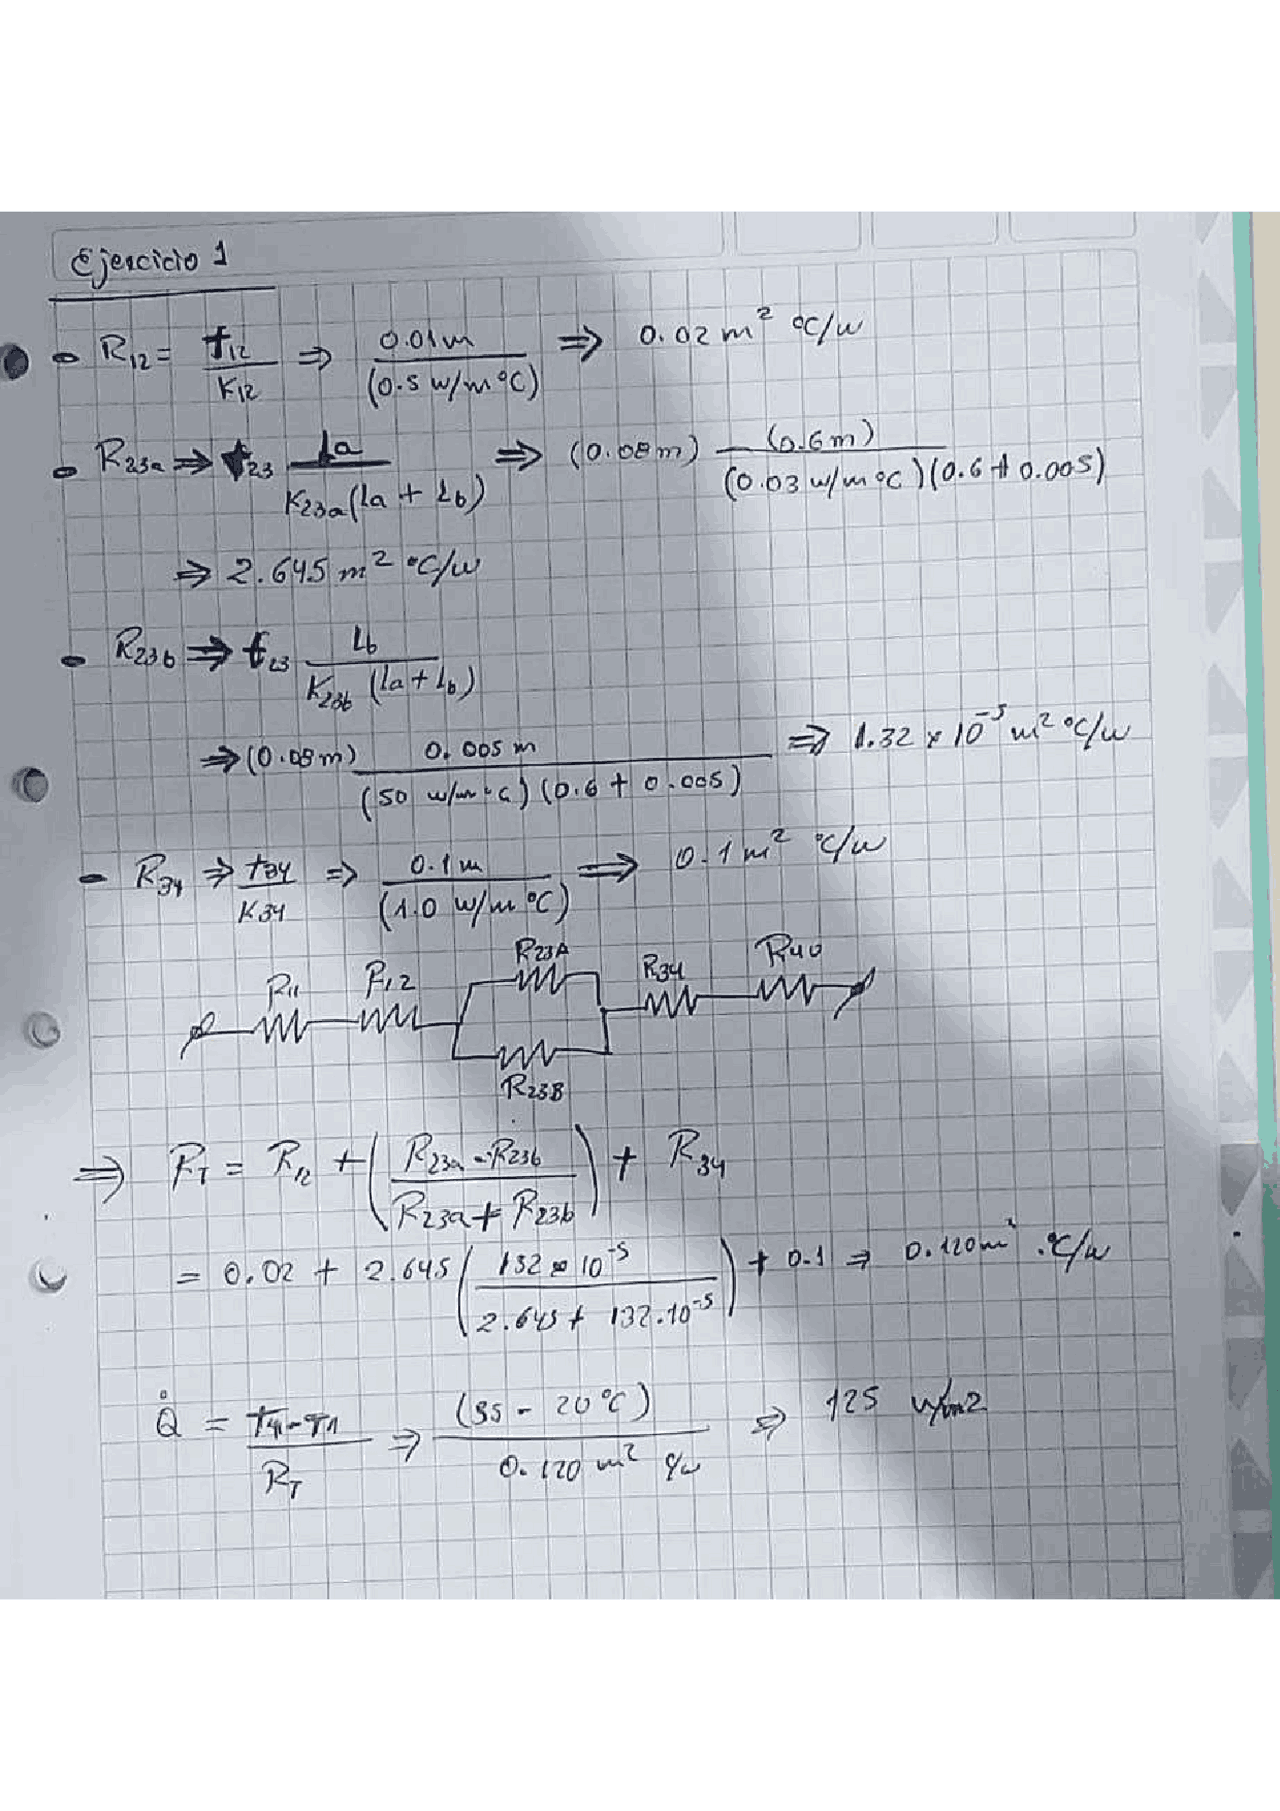 Ejercicio 1
- R12 = t12 / K12 ⇒ 0.01m / (0.5 w/m°C) ⇒ 0.02 m² °C/w
- R23a ⇒ t23 La / K23a(La + Lb) ⇒ (0.08m) (0.6m) / (0.03 w/m°C)(0.6 + 0.005)
⇒ 2.645 m² °C/w
- R23b ⇒ t23 Lb / K23b (La + Lb)
⇒ (0.08m) 0.005 m / (50 w/m°C)(0.6 + 0.005) ⇒ 1.32 x 10⁻⁵ m² °C/w
- R34 ⇒ t34 / K34 ⇒ 0.1m / (1.0 w/m °C) ⇒ 0.1 m² °C/w
R11 R12 R23A R34 R40
R23B
⇒ RT = R12 + (R23a · R23b / R23a + R23b) + R34
= 0.02 + 2.645 (132 x 10⁻⁵ / 2.645 + 132.10⁻⁵) + 0.1 ⇒ 0.120 m² .°C/w
Q̇ = T4 - T1 / RT ⇒ (35 - 20°C) / 0.120 m² °C/w ⇒ 125 w/m2